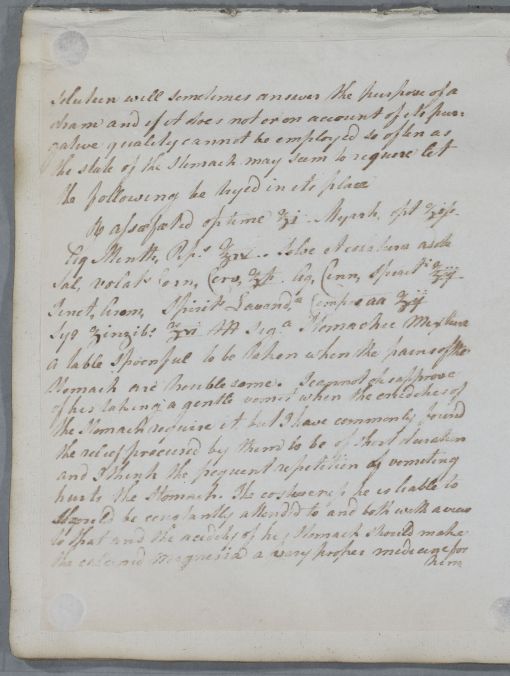 solution will sometimes answer the purpose of a
dram and if it does not or on account of its pur=
gative quality cannot be employed so often as
the state of the stomach may seem to require let
the following be tryed in its place
℞ assafœtid optime ʒi. Myrrh. opt
Aq Menth. Pip.s Solve et colatura adde
Sal. volat Corn. Cerv. Aq. Cinn. Spirit
Tinct. Spirit Lavend.a Comp. aa ʒij
Syr zinzib. ʒvi M Stomachic Mixture
a table spoonful to be taken when the pains of the
Stomach are trouble some. I cannot disapprove
of his taking a gentle vomit when the crudities of
the Stomach require it but I have commonly found
the relief procured by them to be of short duration
and I think the frequent repetition of vomiting
hurts the Stomach. The costiveness he is liable to
should be constantly attended to and both with a view
to that and the acidity of his Stomach should make
the calcined Magnesia a very proper medicine for
him